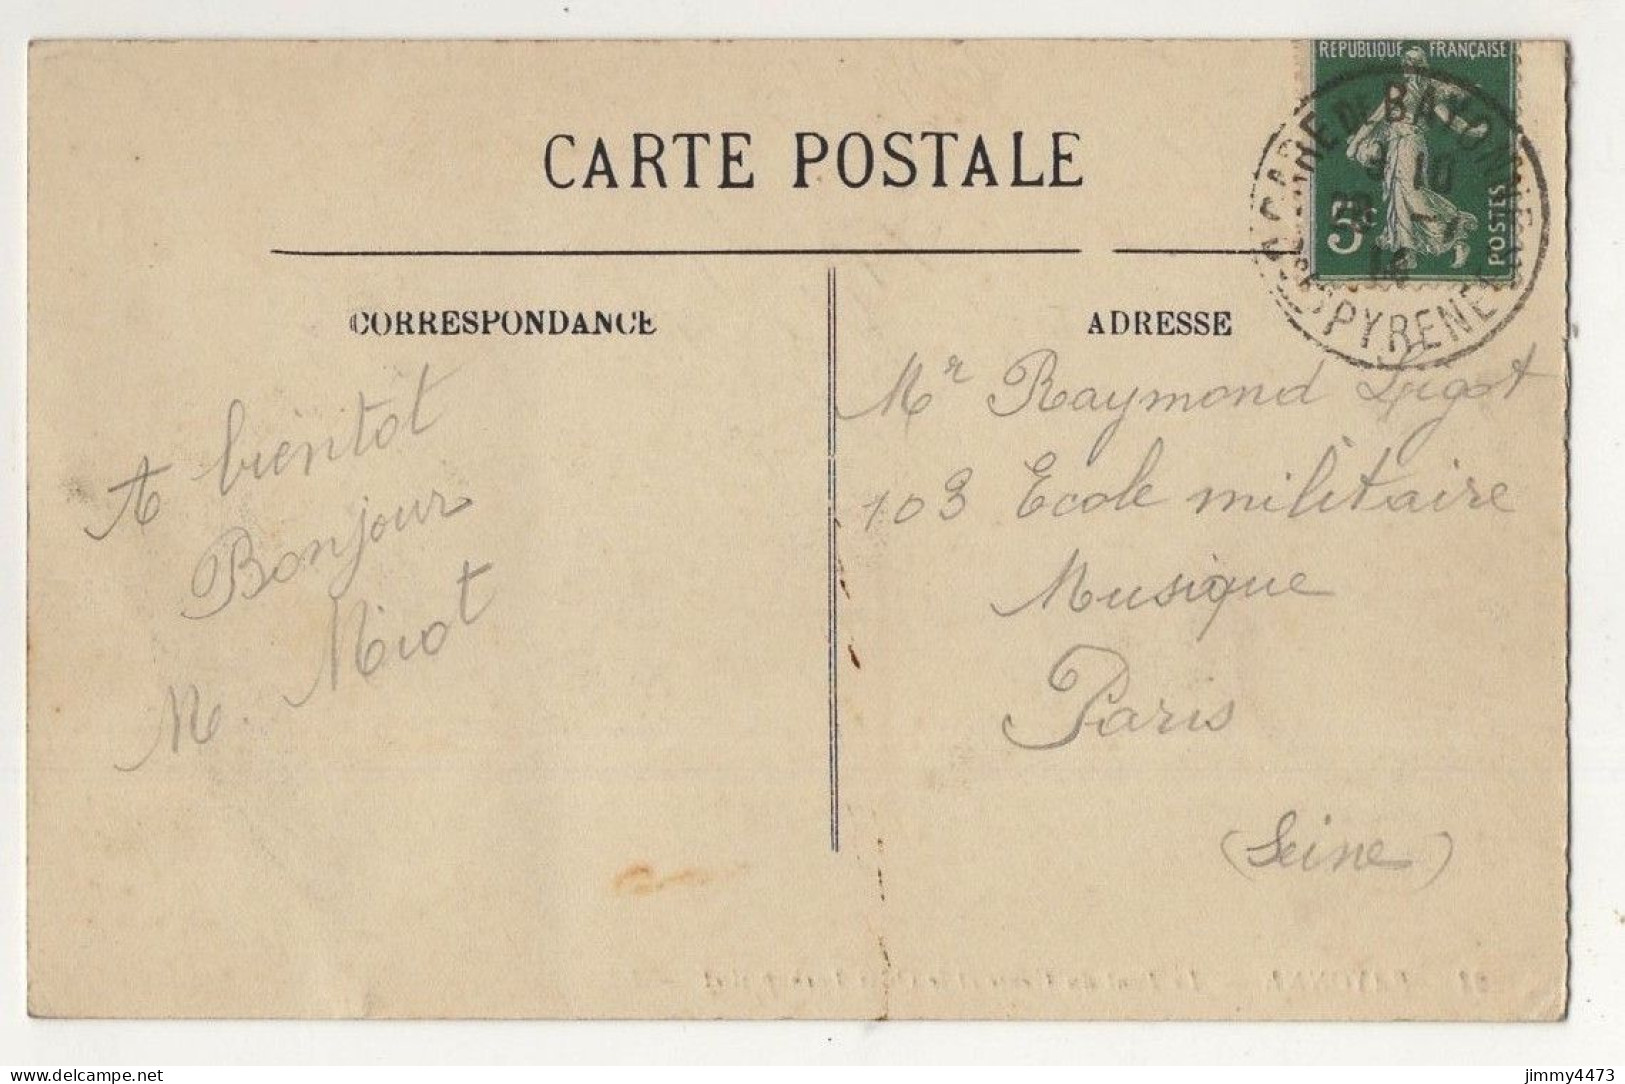 REPUBLIQUE FRANÇAISE
5c
POSTES
GARE DE BAYONNE
PYRENEES
CARTE POSTALE
CORRESPONDANCE
ADRESSE
A bientot
Bonjour
M. Miot
Mr Raymond Ligot
103 Ecole militaire
Musique
Paris
(Seine)
jimmy4473